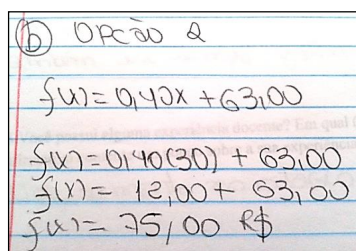 b) OPCÃO 2
f(x) = 0,40x + 63,00
f(x) = 0,40(30) + 63,00
f(x) = 12,00 + 63,00
f(x) = 75,00 R$